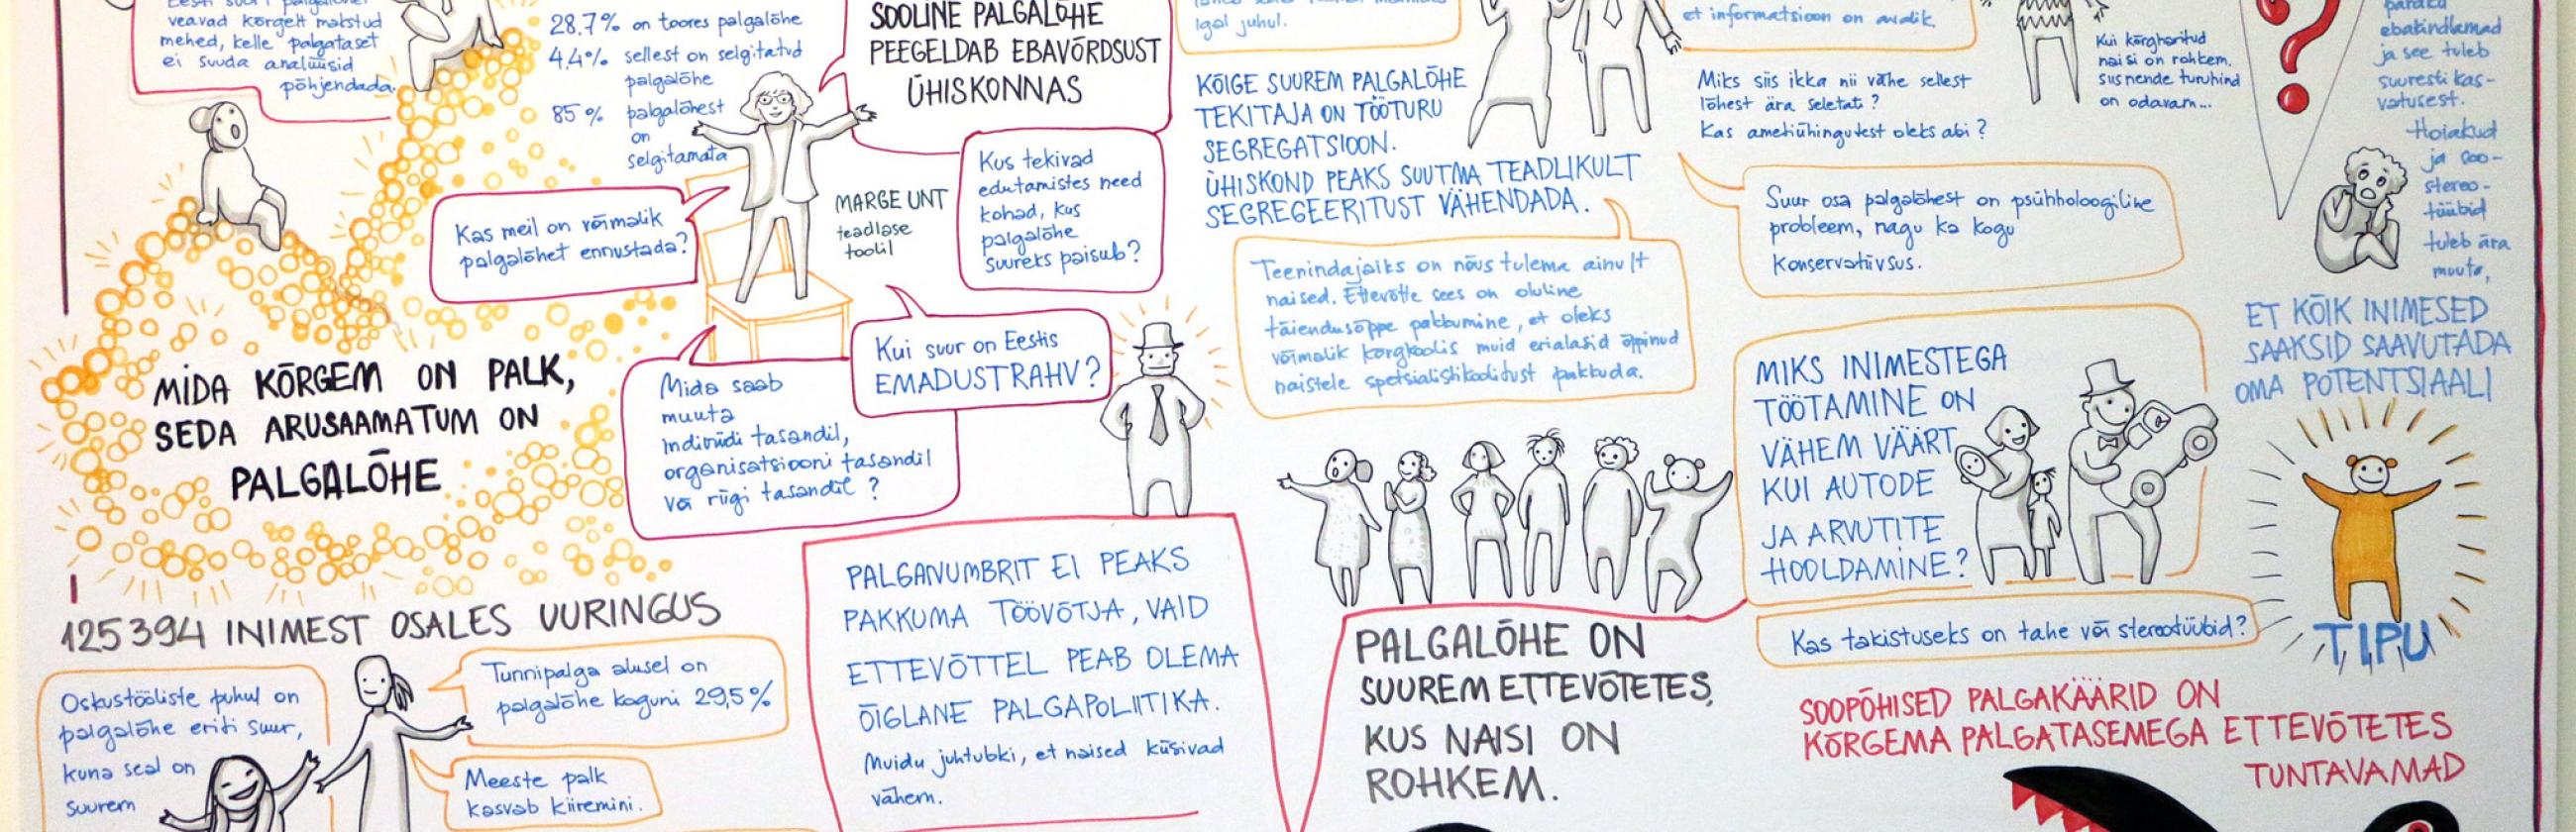 veavad kõrgelt makstud
mehed, kelle palgataset
ei suuda analüüsid
põhjendada.
28.7% on toores palgalõhe
4.4% sellest on selgitatud
palgalõhe
85% palgalõhest
on
selgitamata
SOOLINE PALGALÕHE
PEEGELDAB EBAVÕRDSUST
ÜHISKONNAS
Kas meil on võimalik
palgalõhet ennustada?
MARGE UNT
teadlase
toolil
Kus tekivad
edutamistes need
kohad, kus
palgalõhe
suureks paisub?
Kui suur on Eestis
EMADUSTRAHV?
Mida saab
muuta
indiviidi tasandil,
organisatsiooni tasandil
või riigi tasandil?
MIDA KÕRGEM ON PALK,
SEDA ARUSAAMATUM ON
PALGALÕHE
125394 INIMEST OSALES UURINGUS
Oskustööliste puhul on
palgalõhe eriti suur,
kuna seal on
suurem
Tunnipalga alusel on
palgalõhe koguni 29,5%
Meeste palk
kasvab kiiremini.
PALGANUMBRIT EI PEAKS
PAKKUMA TÖÖVÕTJA, VAID
ETTEVÕTTEL PEAB OLEMA
ÕIGLANE PALGAPOLIITIKA.
Muidu juhtubki, et naised küsivad
vähem.
igal juhul.
KÕIGE SUUREM PALGALÕHE
TEKITAJA ON TÖÖTURU
SEGREGATSIOON.
ÜHISKOND PEAKS SUUTMA TEADLIKULT
SEGREGEERITUST VÄHENDADA.
Teenindajaiks on nõus tulema ainult
naised. Ettevõtte sees on oluline
täiendusõppe pakkumine, et oleks
võimalik kõrgkoolis muid erialasid õppinud
naistele spetsialistikoolitust pakkuda.
et informatsioon on avalik
Miks siis ikka nii vähe sellest
lõhest ära seletati?
Kas ametiühingutest oleks abi?
Suur osa palgalõhest on psühholoogiline
probleem, nagu ka kogu
konservatiivsus.
Kui kõrgharitud
naisi on rohkem.
siis nende turuhind
on odavam...
MIKS INIMESTEGA
TÖÖTAMINE ON
VÄHEM VÄÄRT
KUI AUTODE
JA ARVUTITE
HOOLDAMINE?
Kas takistuseks on tahe või stereotüübid?
PALGALÕHE ON
SUUREM ETTEVÕTETES,
KUS NAISI ON
ROHKEM.
SOOPÕHISED PALGAKÄÄRID ON
KÕRGEMA PALGATASEMEGA ETTEVÕTETES
TUNTAVAMAD
ebakindlamad
ja see tuleb
suuresti kas-
vatusest.
Hoiakud
ja soo-
stereo-
tüübid
tuleb ära
muuta,
ET KÕIK INIMESED
SAAKSID SAAVUTADA
OMA POTENTSIAALI
TIPU